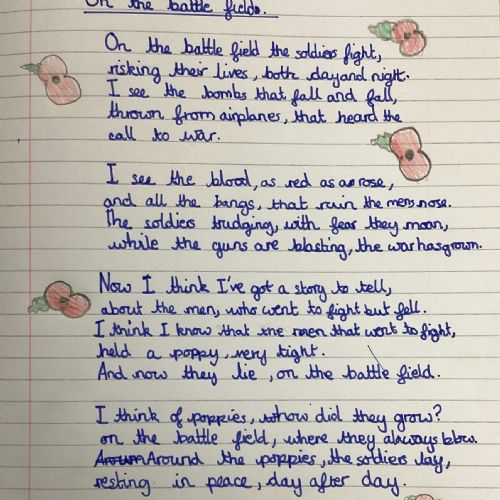 On the battle fields.
On the battle field the soldiers fight,
risking their lives, both day and night.
I see the bombs that fall and fall,
thrown from airplanes, that heard the
call to war.
I see the blood, as red as a rose,
and all the bangs, that ruin the mens nose.
The soldiers trudging, with fear they moan,
while the guns are blasting, the war has grown.
Now I think I've got a story to tell,
about the men, who went to fight but fell.
I think I know that the men that went to fight,
held a poppy, very tight.
And now they lie, on the battle field.
I think of poppies, how did they grow?
on the battle field, where they always blow.
Around the poppies, the soldiers lay,
resting in peace, day after day.